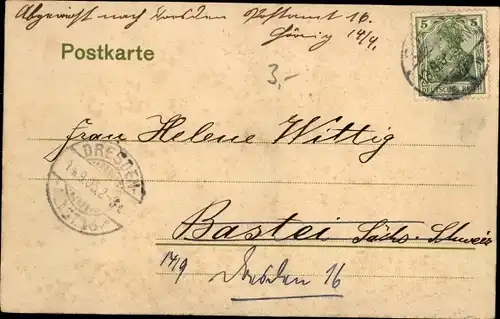 Abgereist nach Dresden Postamt 16.
14/9.
Postkarte
5 5
3,-
Frau Helene Wittig
DRESDEN
Bastei Sächs. Schweiz
14/9 Dresden 16